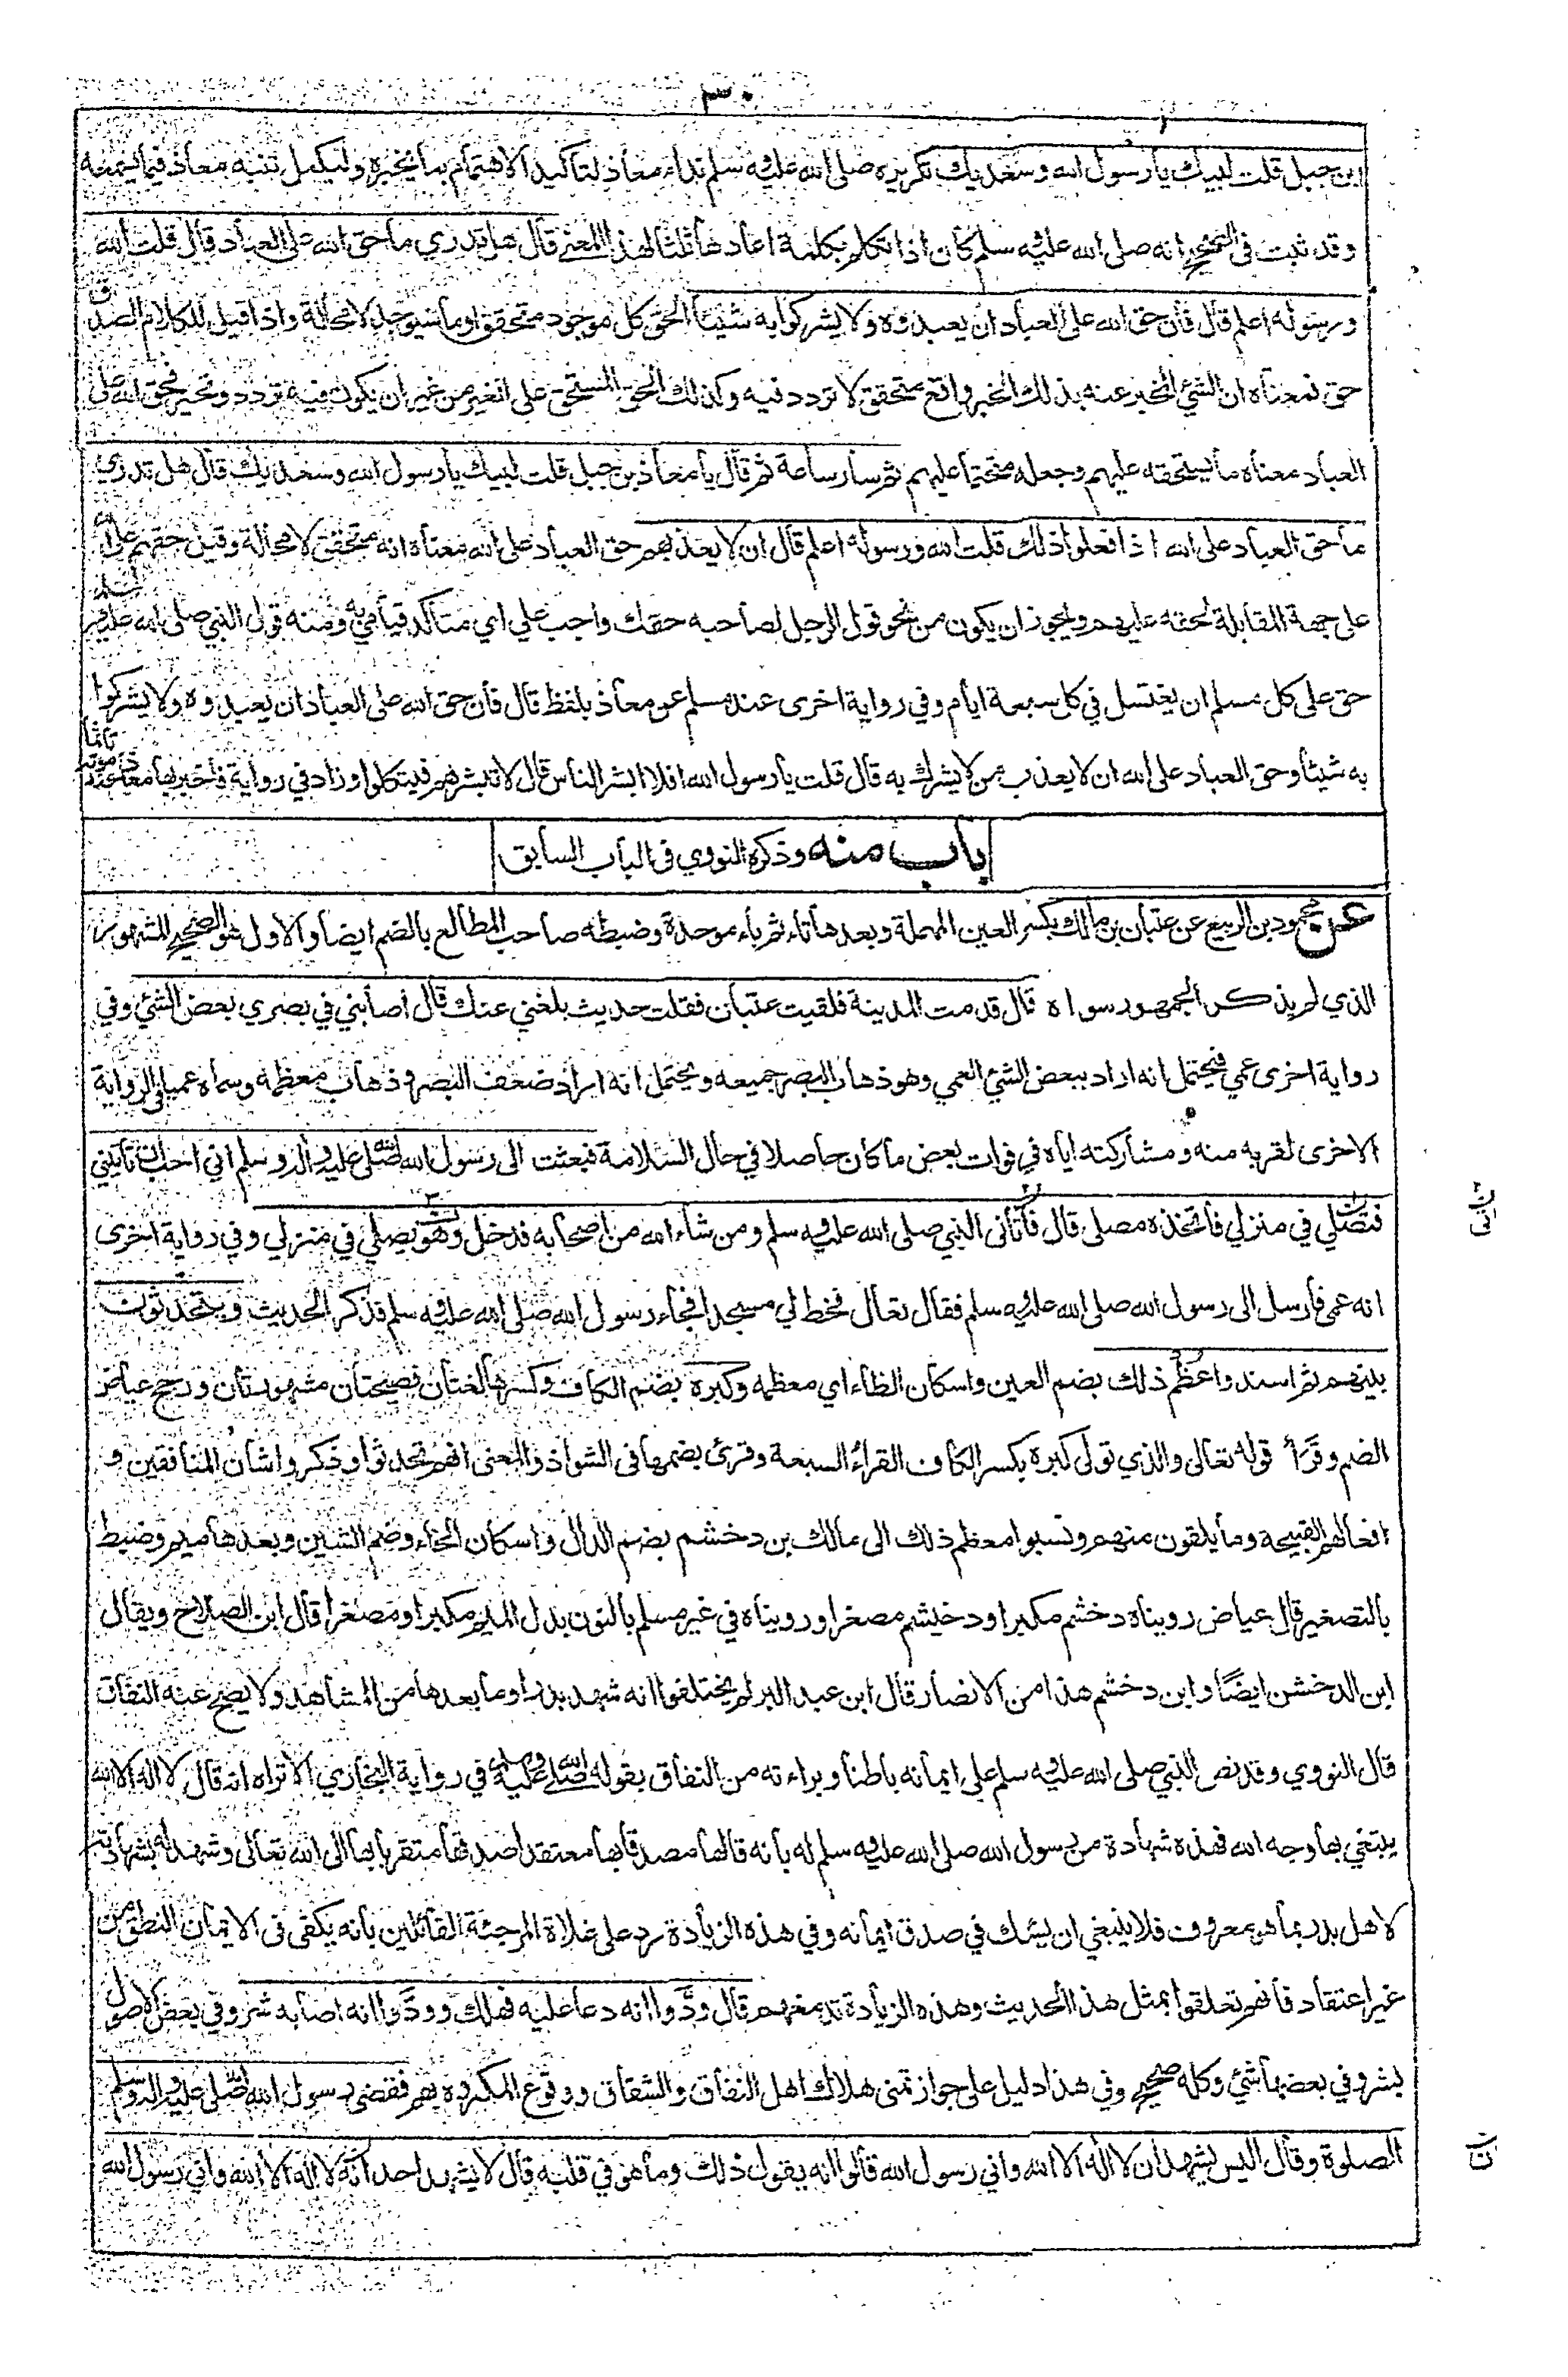 ٣٠
ابن جبل قلت لبيك يا رسول الله وسعديك تكريره صلى الله عليه وسلم نداء معاذ لتاكيد الاهتمام بما يخبره وليكمل تنبه معاذ فيما يسمعه
وقد ثبت في الصحيح انه صلى الله عليه وسلم كان اذا تكلم بكلمة اعادها ثلثا لهذا المعنى قال هل تدري ما حق الله على العباد قال قلت الله
ورسوله اعلم قال فان حق الله على العباد ان يعبدوه ولا يشركوا به شيئا الحق كل موجود متحقق او ما سيوجد لا محالة واذا قيل للكلام الصدق
حق فمعناه ان الشئ المخبر عنه بذلك الخبر واقع متحقق لا تردد فيه وكذلك الحق المستحق على الغير من غير ان يكون فيه تردد وتحير فحق الله على
العباد معناه ما يستحقه عليهم وجعله متحتما عليهم ثم سار ساعة ثم قال يا معاذ بن جبل قلت لبيك يا رسول الله وسعديك قال هل تدري
ما حق العباد على الله اذا فعلوا ذلك قلت الله ورسوله اعلم قال ان لا يعذبهم حق العباد على الله معناه انه متحقق لا محالة وقيل حقهم على الله
على جهة المقابلة لحقه عليهم ويجوز ان يكون من نحو قول الرجل لصاحبه حقك واجب علي اي متأكد قيامي به ومنه قول النبي صلى الله عليه وسلم
حق على كل مسلم ان يغتسل في كل سبعة ايام وفي رواية اخرى عند مسلم عن معاذ بلفظ قال فان حق الله على العباد ان يعبدوه ولا يشركوا
به شيئا وحق العباد على الله ان لا يعذب من لا يشرك به قال قلت يا رسول الله افلا ابشر الناس قال لا تبشرهم فيتكلوا وزاد في رواية فاخبر بها معاذ عند موته تأثما
باب منه وذكره النووي في الباب السابق
عن محمود بن الربيع عن عتبان بن مالك بكسر العين المهملة وبعدها تاء ثم باء موحدة وضبطه صاحب المطالع بالضم ايضا والاول هو الصحيح المشهور
الذي لم يذكر الجمهور سواه قال قدمت المدينة فلقيت عتبان فقلت حديث بلغني عنك قال اصابني في بصري بعض الشئ وفي
رواية اخرى عمي فيحتمل انه اراد ببعض الشئ العمي وهو ذهاب البصر جميعه ويحتمل انه اراد ضعف البصر وذهاب معظمه وسماه عميا في الرواية
الاخرى لقربه منه ومشاركته اياه في فوات بعض ما كان حاصلا في حال السلامة فبعثت الى رسول الله صلى الله عليه وآله وسلم اني احب ان تأتيني
فتصلي في منزلي فاتخذه مصلى قال فأتاني النبي صلى الله عليه وسلم ومن شاء الله من اصحابه فدخل وهو يصلي في منزلي وفي رواية اخرى
انه عمي فأرسل الى رسول الله صلى الله عليه وسلم فقال تعال فخط لي مسجدا فجاء رسول الله صلى الله عليه وسلم فذكر الحديث ويتحدثون
بينهم ثم اسندوا عظم ذلك بضم العين واسكان الظاء اي معظمه وكبره بضم الكاف وكسرها لغتان فصيحتان مشهورتان ورجح عياض
الضم وقرأ قوله تعالى والذي تولى كبره بكسر الكاف القراء السبعة وقرئ بضمها في الشواذ والمعنى انهم تحدثوا وذكروا شأن المنافقين و
افعالهم القبيحة وما يلقون منهم ونسبوا معظم ذلك الى مالك بن دخشم بضم الدال واسكان الخاء وضم الشين وبعدها ميم وضبط
بالتصغير قال عياض رويناه دخشم مكبرا ودخيشم مصغرا ورويناه في غير مسلم بالنون بدل الميم مكبرا ومصغرا قال ابن الصلاح ويقال
ابن الدخشن ايضًا وابن دخشم هذا من الانصار قال ابن عبد البر لم يختلفوا انه شهد بدرا وما بعدها من المشاهد ولا يصح عنه النفاق
قال النووي وقد نص النبي صلى الله عليه وسلم على ايمانه باطنا وبراءته من النفاق بقوله صلى الله عليه وسلم في رواية البخاري الا تراه انه قال لا اله الا الله
يبتغي بها وجه الله فهذه شهادة من رسول الله صلى الله عليه وسلم له بأنه قالها مصدقا بها معتقدا صدقها متقربا بها الى الله تعالى وشهد له بشهادته
لاهل بدر بما هو معروف فلا ينبغي ان يشك في صدق ايمانه وفي هذه الزيادة رد على غلاة المرجئة القائلين بأنه يكفى في الايمان النطق من
غير اعتقاد فانهم تعلقوا بمثل هذا الحديث وهذه الزيادة تدمغهم قال ودّوا انه دعا عليه فهلك وودّوا انه اصابه شر وفي بعض الاصول
بشر وفي بعضها شئ وكله صحيح وفي هذا دليل على جواز تمني هلاك اهل النفاق والشقاق ووقوع المكروه بهم فقضى رسول الله صلى الله عليه وآله وسلم
الصلوة وقال اليس يشهد ان لا اله الا الله واني رسول الله قالوا انه يقول ذلك وما هو في قلبه قال لا يشهد احد انه لا اله الا الله واني رسول الله